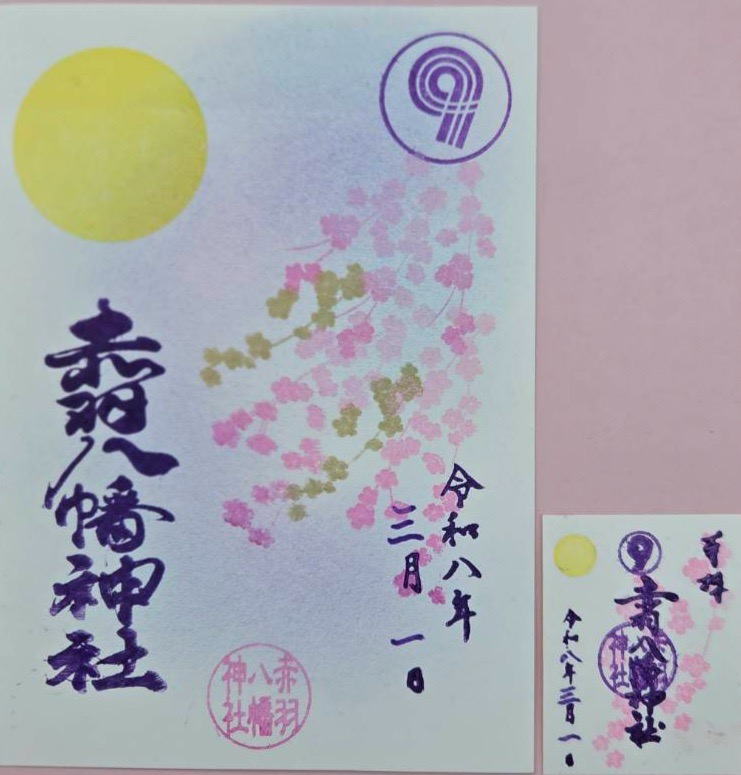 令和八年
三月一日
赤羽八幡神社
赤羽
八幡
神社
奉拝
赤羽八幡神社
令和八年三月一日